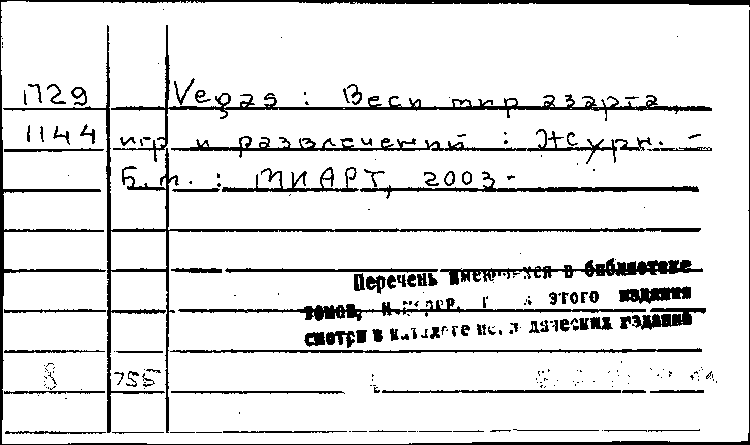 П29 Vegas : Весь мир азарта,
1144 игр и развлечений : Журн. -
Б.м. : МИАРТ, 2003-
Перечень имеющихся в библиотеке
томов, этого издания
смотри в каталоге периодических изданий
8 755